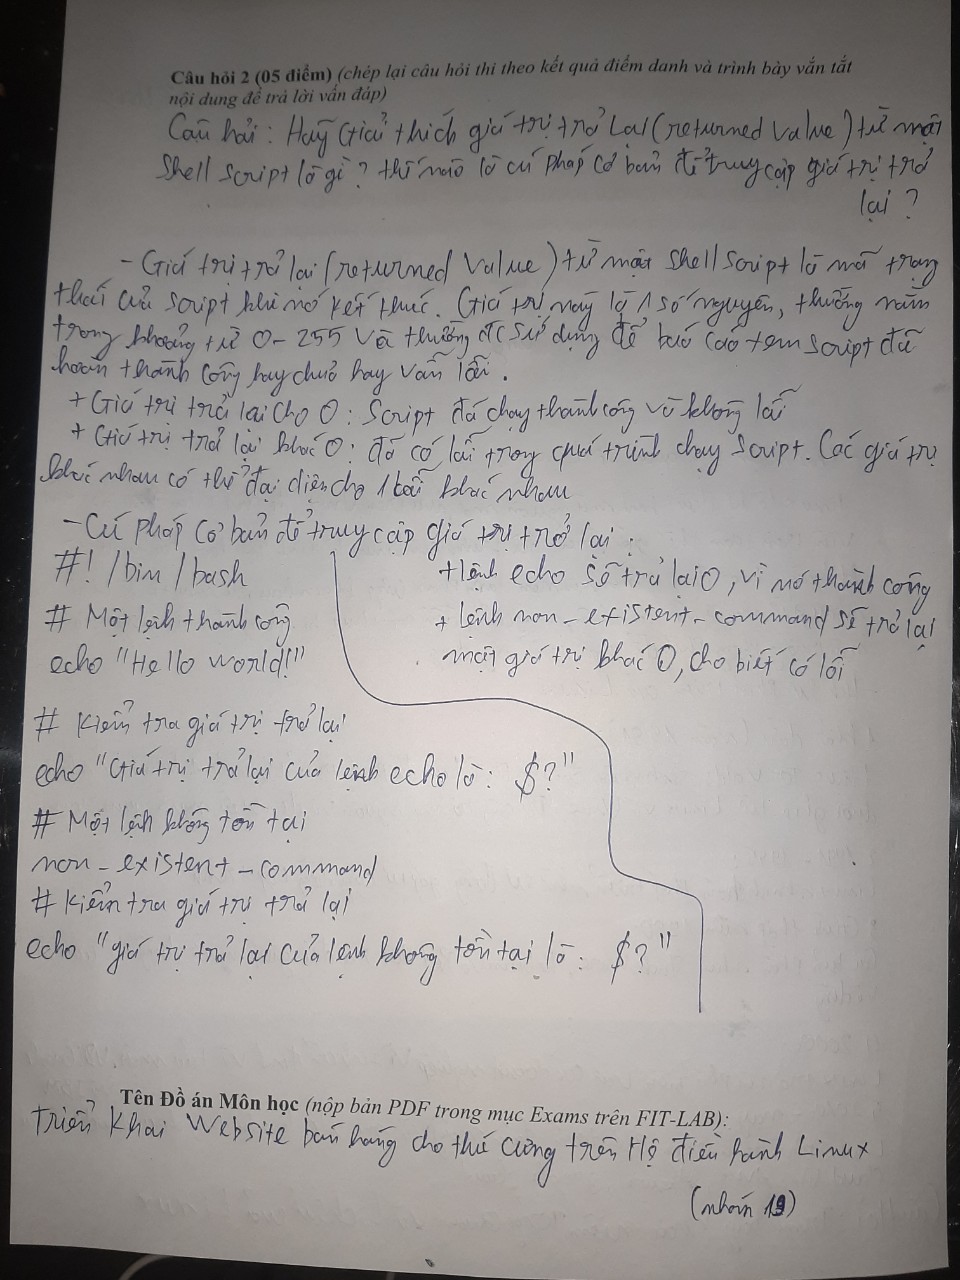 Câu hỏi 2 (05 điểm) (chép lại câu hỏi thi theo kết quả điểm danh và trình bày vắn tắt
nội dung để trả lời vấn đáp)
Câu hỏi : Hãy Giải thích giá trị trở Lại (returned Value) từ một
Shell Script là gì ? thế nào là cú pháp cơ bản để truy cập giá trị trở
lại ?
- Giá trị trở lại (returned Value) từ một Shell Script là mã trạng
thái của Script khi nó kết thúc. Giá trị này là 1 số nguyên, thường nằm
trong khoảng từ 0 - 255 và thường đc sử dụng để báo cáo xem Script đã
hoàn thành công hay chưa hay vẫn lỗi .
+ Giá trị trả lại cho 0 : Script đã chạy thành công và không lỗi
+ Giá trị trả lại khác 0 : đã có lỗi trong quá trình chạy Script. Các giá trị
khác nhau có thể đại diện cho 1 lỗi khác nhau
- Cú pháp cơ bản để truy cập giá trị trở lại :
#! /bin /bash
# Một lệnh thành công
echo "Hello world!"
# Kiểm tra giá trị trở lại
echo "Giá trị trả lại của lệnh echo là : $?"
# Một lệnh không tồn tại
non - existent - command
# Kiểm tra giá trị trả lại
echo "giá trị trả lại của lệnh không tồn tại là : $?"
+ lệnh echo sẽ trả lại 0, vì nó thành công
+ lệnh non - existent - command sẽ trở lại
một giá trị khác 0, cho biết có lỗi
Tên Đồ án Môn học (nộp bản PDF trong mục Exams trên FIT-LAB):
Triển Khai Website bán hàng cho thú cưng trên Hệ điều hành Linux
(nhóm 19)